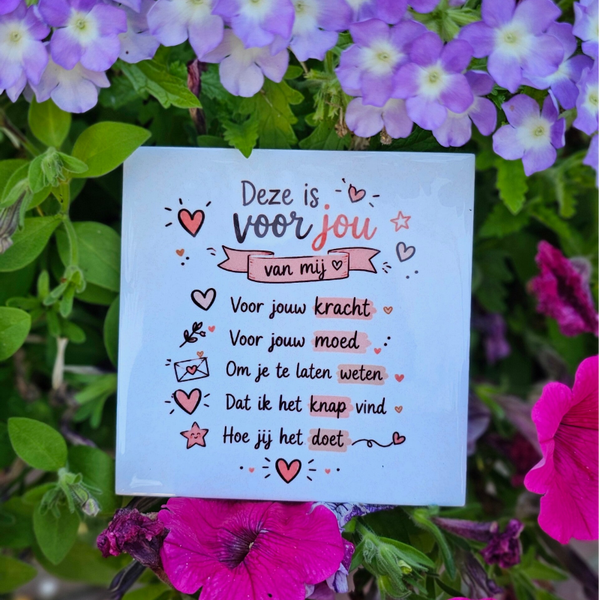 Deze is
voor jou
van mij
Voor jouw kracht
Voor jouw moed
Om je te laten weten
Dat ik het knap vind
Hoe jij het doet